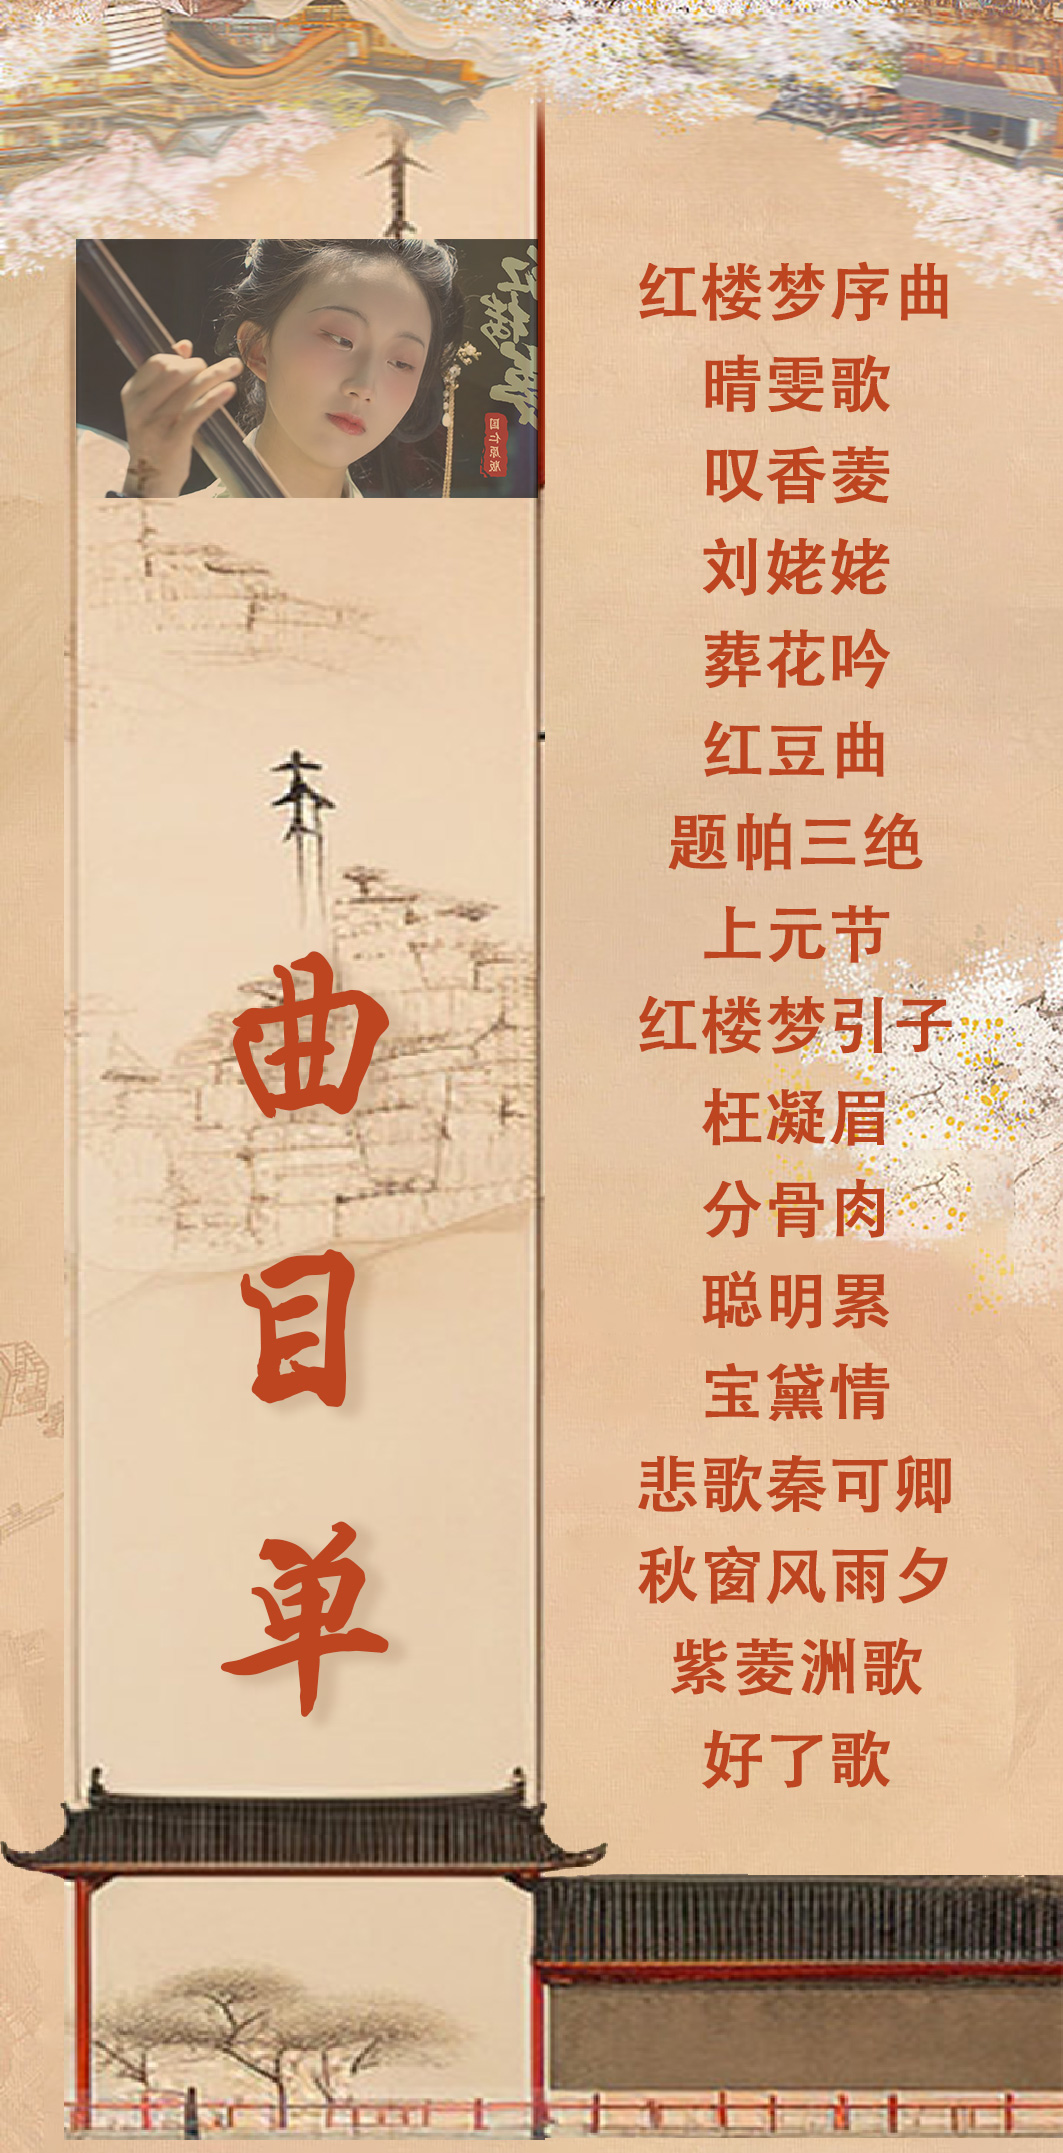 红楼梦
国仁原版
红楼梦序曲
晴雯歌
叹香菱
刘姥姥
葬花吟
红豆曲
题帕三绝
上元节
红楼梦引子
枉凝眉
分骨肉
聪明累
宝黛情
悲歌秦可卿
秋窗风雨夕
紫菱洲歌
好了歌
曲目单